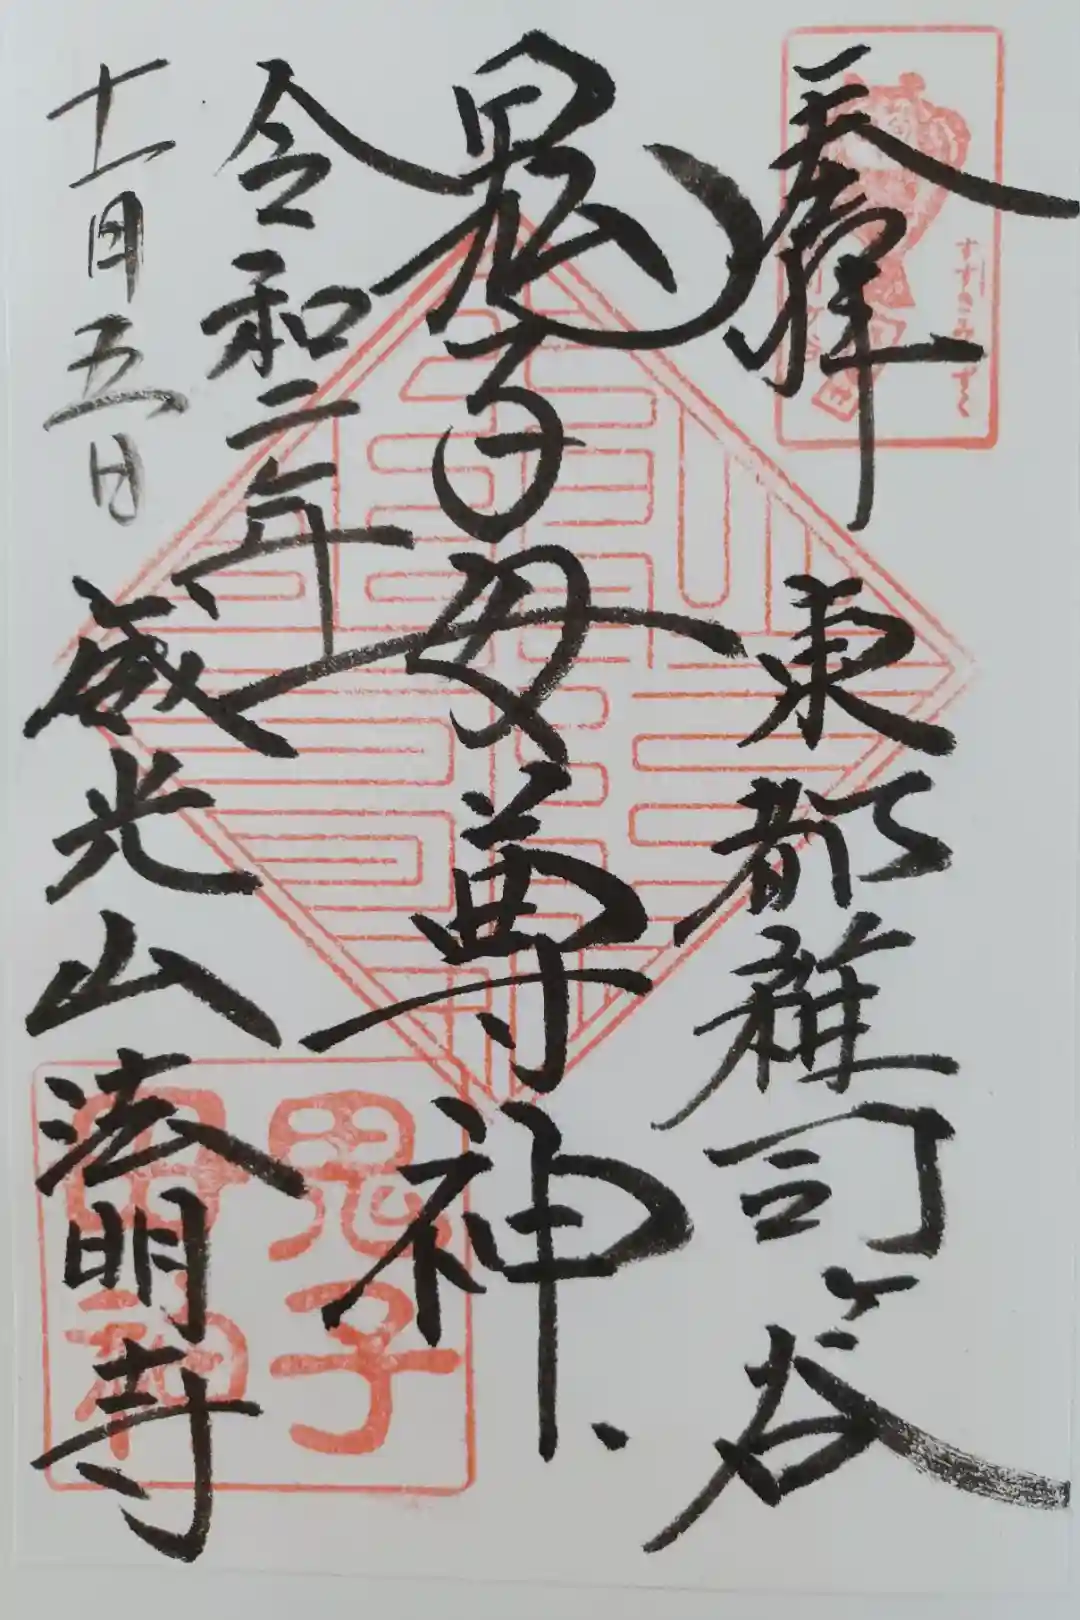 奉拝
すすきみみずく
東都雑司ケ谷
鬼子母尊神
令和二年
十一月五日
威光山法明寺
鬼子
母神